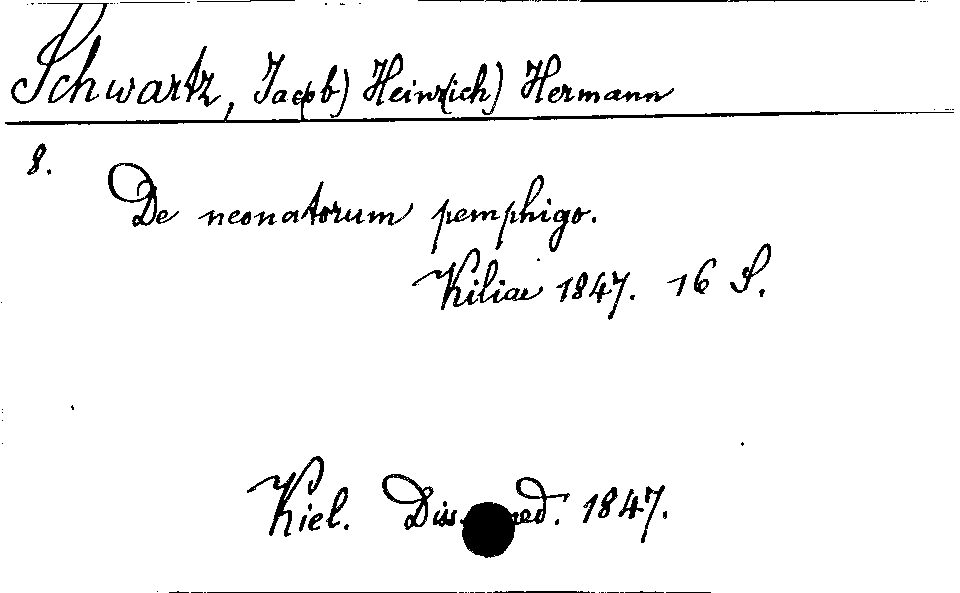 Schwartz, Jac(ob) Heinr(ich) Hermann
8.
De neonatorum pemphigo.
Kiliae 1847. 16 S.
Kiel. Diss. med. 1847.